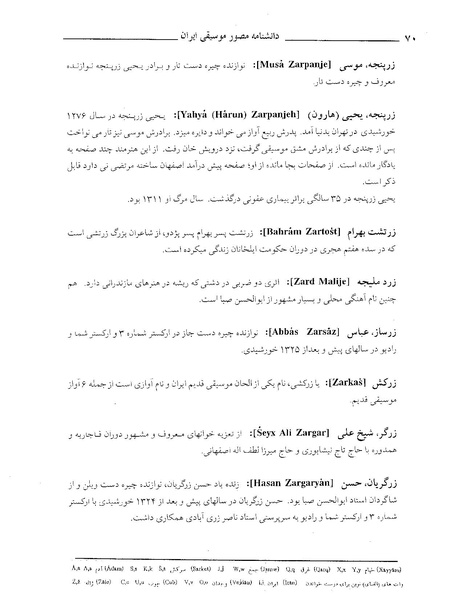 ۷۰ دانشنامه مصور موسیقی ایران
زرپنجه، موسی [Musâ Zarpanje]: نوازنده چیره دست تار و برادر یحیی زرپنجه نوازنده
معروف و چیره دست تار.
زرپنجه، یحیی (هارون) [Yahyâ (Hârun) Zarpanjeh]: یحیی زرپنجه در سال ۱۲۷۶
خورشیدی در تهران بدنیا آمد. پدرش ربیع آواز می خواند و دایره میزد. برادرش موسی نیز تار می نواخت
پس از چندی که از برادرش مشق موسیقی گرفت، نزد درویش خان رفت. از این هنرمند چند صفحه به
یادگار مانده است. از صفحات بجا مانده از او؛ صفحه پیش درآمد اصفهان ساخته مرتضی نی داود قابل
ذکر است.
یحیی زرپنجه در ۳۵ سالگی براثر بیماری عفونی درگذشت. سال مرگ او ۱۳۱۱ بود.
زرتشت بهرام [Bahrâm Zartošt]: زرتشت پسر بهرام پسر پژدو، از شاعران بزرگ زرتشتی است
که در سده هفتم هجری در دوران حکومت ایلخانان زندگی میکرده است.
زرد ملیجه [Zard Malije]: اثری دو ضربی در دشتی که ریشه در هنرهای مازندرانی دارد. هم
چنین نام آهنگی محلی و بسیار مشهور از ابوالحسن صبا است.
زرساز، عباس [Abbâs Zarsâz]: نوازنده چیره دست جاز در ارکستر شماره ۳ و ارکستر شما و
رادیو در سالهای پیش و بعداز ۱۳۲۵ خورشیدی.
زرکش [Zarkaš]: یا زرکشی، نام یکی از الحان موسیقی قدیم ایران و نام آوازی است از جمله ۶ آواز
موسیقی قدیم.
زرگر، شیخ علی [Šeyx Ali Zargar]: از تعزیه خوانهای معروف و مشهور دوران قاجاریه و
همدوره با حاج تاج نیشابوری و حاج میرزا لطف اله اصفهانی.
زرگریان، حسن [Hasan Zargaryân]: زنده یاد حسن زرگریان، نوازنده چیره دست ویلن و از
شاگردان استاد ابوالحسن صبا بود. حسن زرگریان در سالهای پیش و بعد از ۱۳۲۴ خورشیدی با ارکستر
شماره ۳ و ارکستر شما و رادیو به سرپرستی استاد ناصر زری آبادی همکاری داشت.